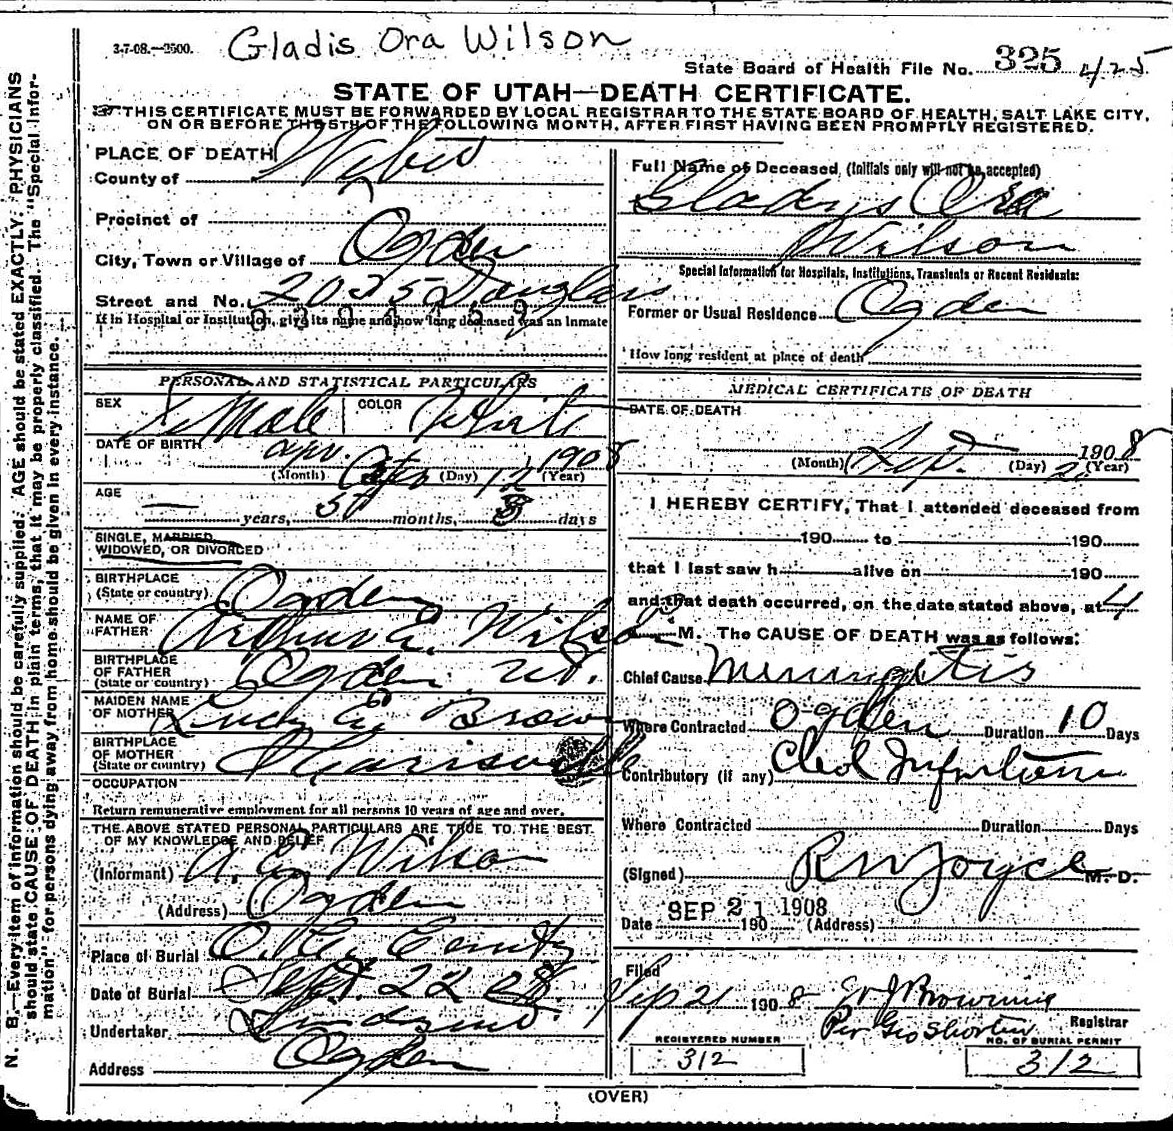 3-7-08.—2500.
Gladis Ora Wilson
State Board of Health File No. 325 425
STATE OF UTAH—DEATH CERTIFICATE.
THIS CERTIFICATE MUST BE FORWARDED BY LOCAL REGISTRAR TO THE STATE BOARD OF HEALTH, SALT LAKE CITY,
ON OR BEFORE THE 5TH OF THE FOLLOWING MONTH, AFTER FIRST HAVING BEEN PROMPTLY REGISTERED.
N. B.—Every item of information should be carefully supplied. AGE should be stated EXACTLY. PHYSICIANS
should state CAUSE OF DEATH in plain terms, that it may be properly classified. The "Special Infor-
mation" for persons dying away from home should be given in every instance.
PLACE OF DEATH
County of Weber
Precinct of
City, Town or Village of Ogden
Street and No. 2035 Douglas
If in Hospital or Institution, give its name and how long deceased was an inmate
PERSONAL AND STATISTICAL PARTICULARS
SEX Female COLOR White
DATE OF BIRTH Apr. 12 1908
(Month) (Day) (Year)
AGE
— years, 5 months, 8 days
SINGLE, MARRIED,
WIDOWED, OR DIVORCED
BIRTHPLACE
(State or country) Ogden
NAME OF
FATHER Arthur E. Wilson
BIRTHPLACE
OF FATHER
(State or country) Ogden Ut.
MAIDEN NAME
OF MOTHER Lucy E. Brown
BIRTHPLACE
OF MOTHER
(State or country) Harrisville
OCCUPATION
Return remunerative employment for all persons 10 years of age and over.
THE ABOVE STATED PERSONAL PARTICULARS ARE TRUE TO THE BEST
OF MY KNOWLEDGE AND BELIEF
(Informant) A. E. Wilson
(Address) Ogden
Place of Burial
Date of Burial Sept. 22 08
Undertaker
Address Ogden
Full Name of Deceased (Initials only will not be accepted)
Gladys Ora
Wilson
Special Information for Hospitals, Institutions, Transients or Recent Residents:
Former or Usual Residence Ogden
How long resident at place of death
MEDICAL CERTIFICATE OF DEATH
DATE OF DEATH
Sept. 1908
(Month) (Day) (Year)
I HEREBY CERTIFY, That I attended deceased from
190 to 190
that I last saw h alive on 190
and that death occurred, on the date stated above, at 4
M. The CAUSE OF DEATH was as follows:
Chief Cause Meningitis
Where Contracted Ogden Duration 10 Days
Contributory (if any)
Where Contracted Duration Days
(Signed) R W Joyce M. D.
Date SEP 21 1908 190 (Address)
Filed
Sep 21 1908 W J Browning
Registrar
Per Geo Shorten
REGISTERED NUMBER
312
NO. OF BURIAL PERMIT
312
(OVER)